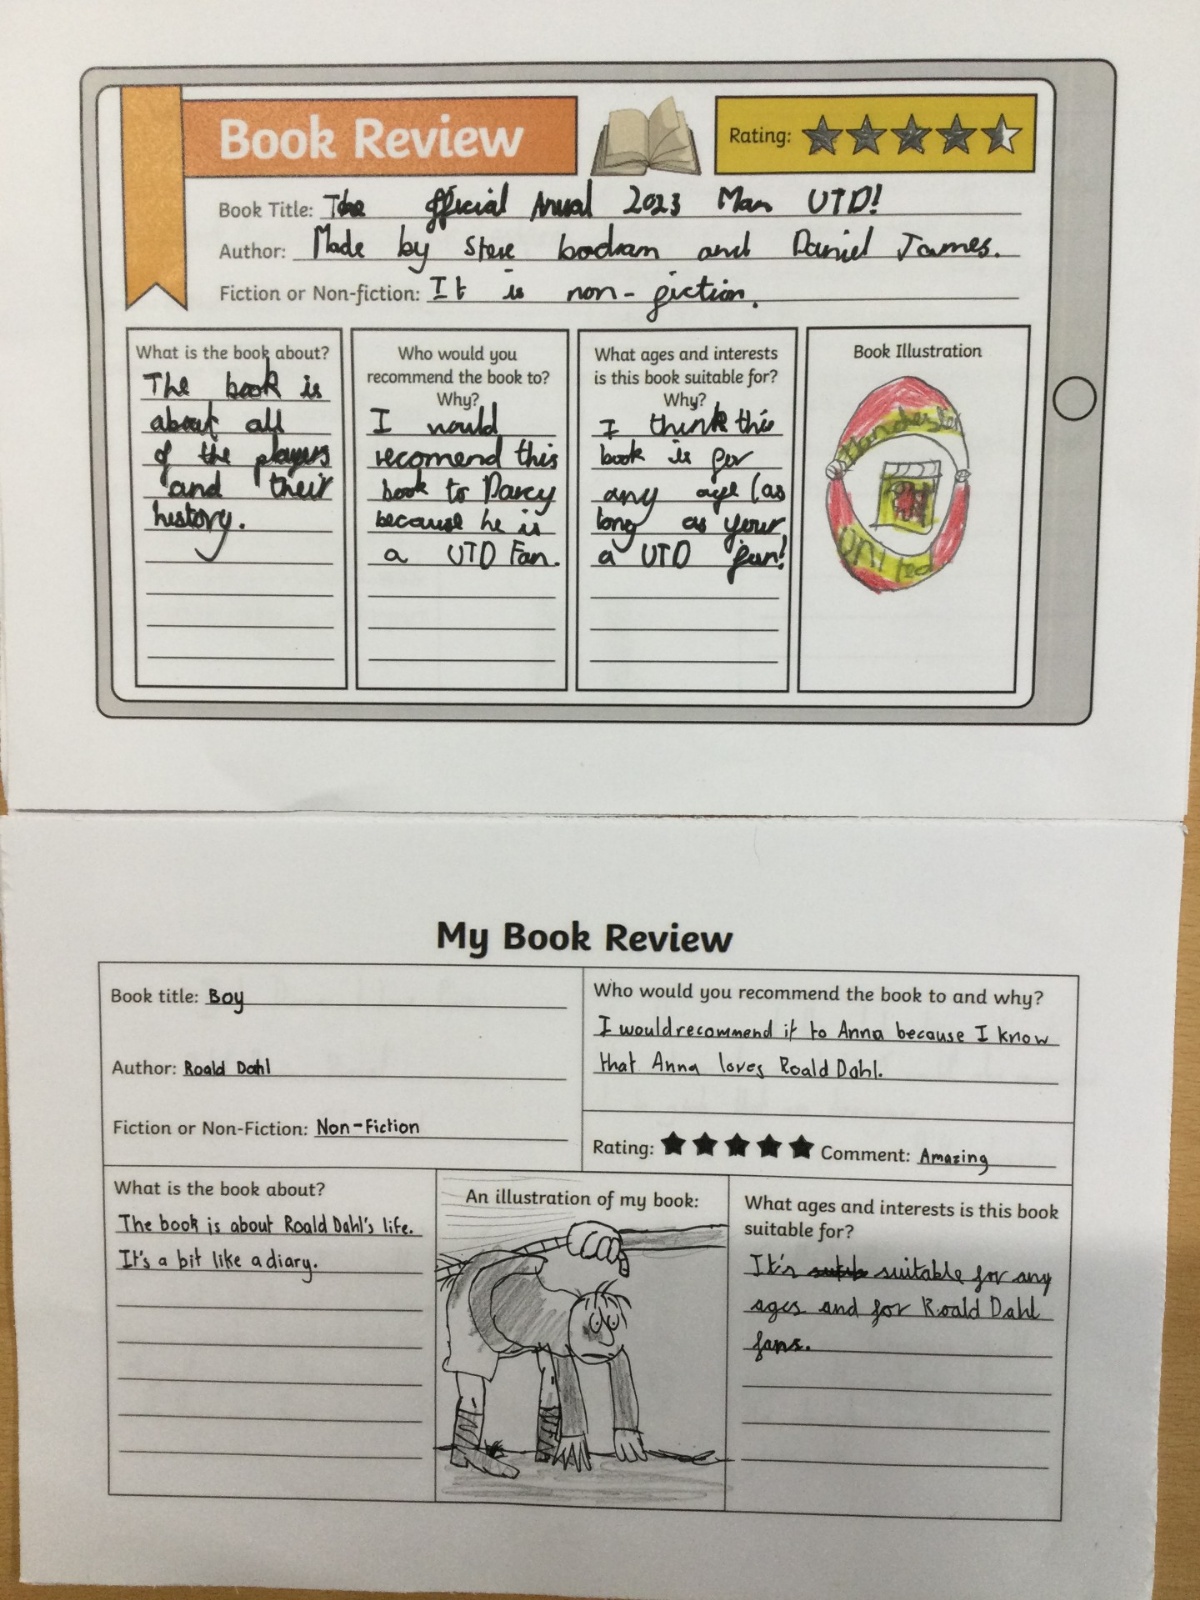 Book Review
Rating:
Book Title: The official Anual 2023 Man UTD!
Author: Made by Steve bodram and Daniel James.
Fiction or Non-fiction: It is non-fiction.
What is the book about?
The book is
about all
of the players
and their
history.
Who would you
recommend the book to?
Why?
I would
recomend this
book to Darcy
because he is
a UTD Fan.
What ages and interests
is this book suitable for?
Why?
I think this
book is for
any age (as
long as your
a UTD fan!
Book Illustration
Manchester
UNITED
My Book Review
Book title: Boy
Author: Roald Dahl
Fiction or Non-Fiction: Non-Fiction
Who would you recommend the book to and why?
I would recommend it to Anna because I know
that Anna loves Roald Dahl.
Rating: Comment: Amazing
What is the book about?
The book is about Roald Dahl's life.
It's a bit like a diary.
An illustration of my book:
What ages and interests is this book
suitable for?
It's suitable for any
ages and for Roald Dahl
fans.